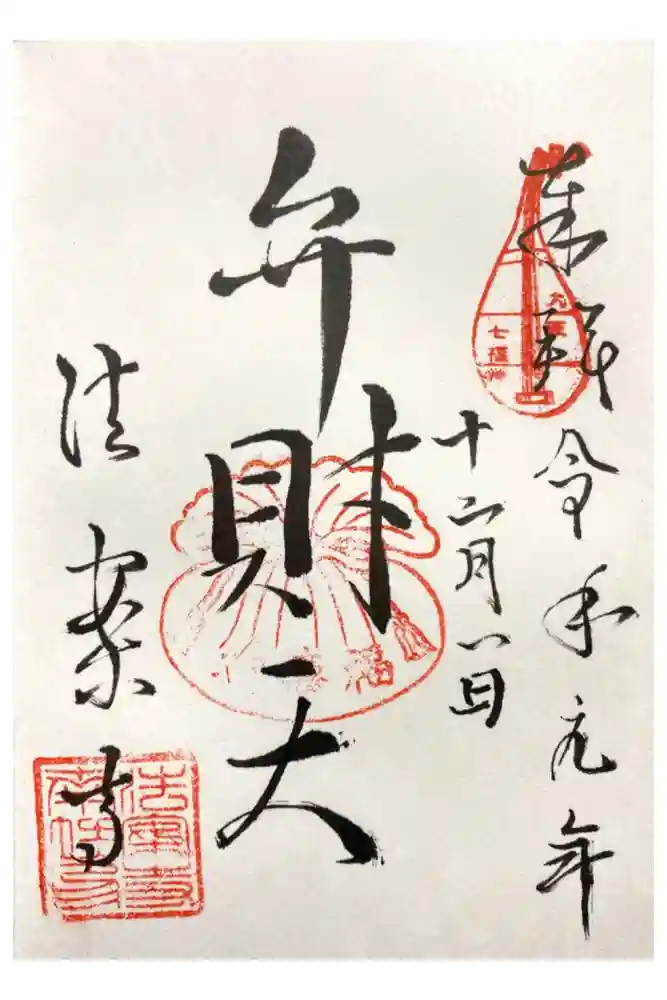 奉拝 令和元年
十二月一日
弁財天
法案寺
七福神